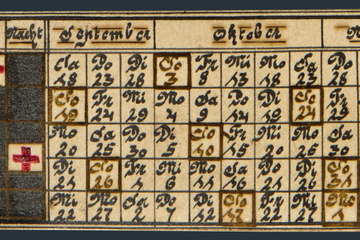 Nacht September Oktober
Sa Do Di So Fr Mi Mo Sa Do
18 23 28 3 8 13 18 23 28
So Fr Mi Mo Sa Do Di So Fr
19 24 29 4 9 14 19 24 29
Mo Sa Do Di So Fr Mi Mo Sa
20 25 30 5 10 15 20 25 30
Di So Fr Mi Mo Sa Do Di So
21 26 1 6 11 16 21 26 31
Mi Mo Sa Do Di So Fr Mi Mo
22 27 2 7 12 17 22 27 1